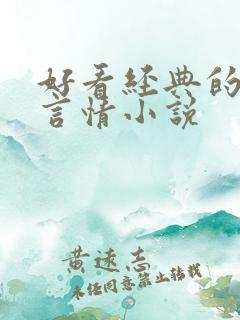 好看经典的
言情小说
黄远志
未经同意禁止转载